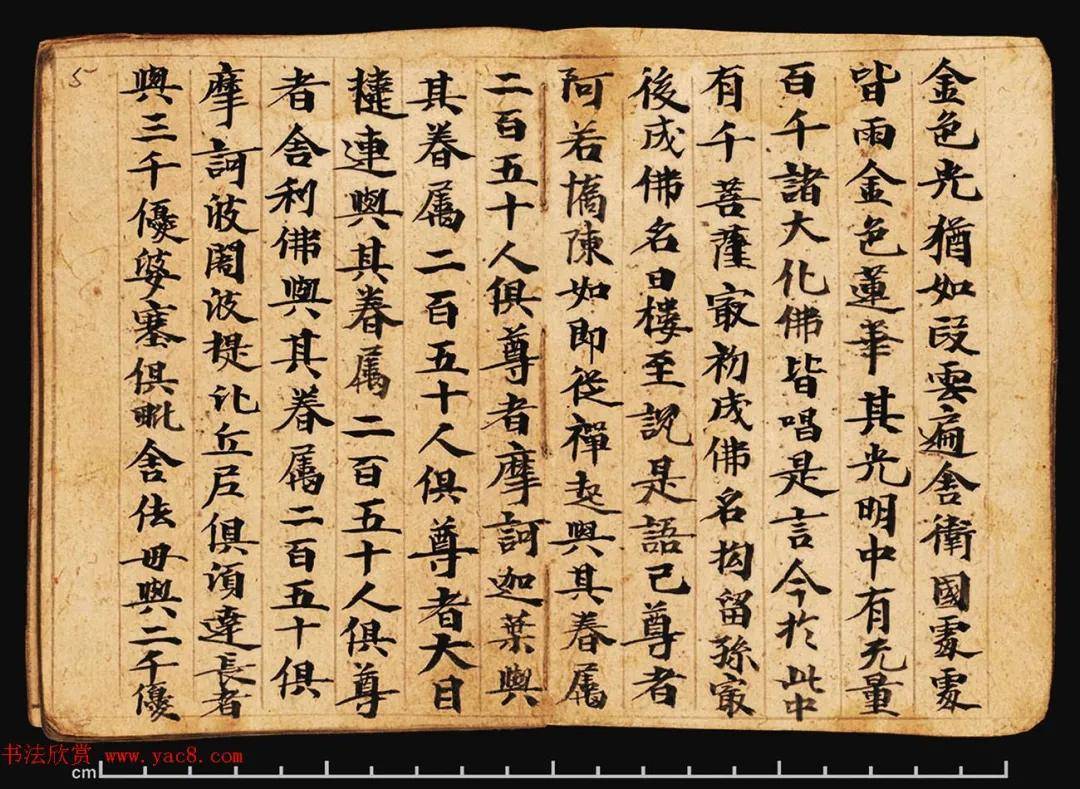 金色光猶如段雲遍舍衛國處處
皆雨金色蓮華其光明中有无量
百千諸大化佛皆唱是言今於此中
有千菩薩寂初成佛名拘留孫寂
後成佛名曰樓至說是語已尊者
阿若憍陳如即從禪起與其眷属
二百五十人俱尊者摩訶迦葉與
其眷属二百五十人俱尊者大目
揵連與其眷属二百五十人俱尊
者舍利佛與其眷属二百五十俱
摩訶波闍波提比丘尼俱須達長者
與三千優婆塞俱毗舍佉母與二千優
5
书法欣赏 www.yac8.com
cm